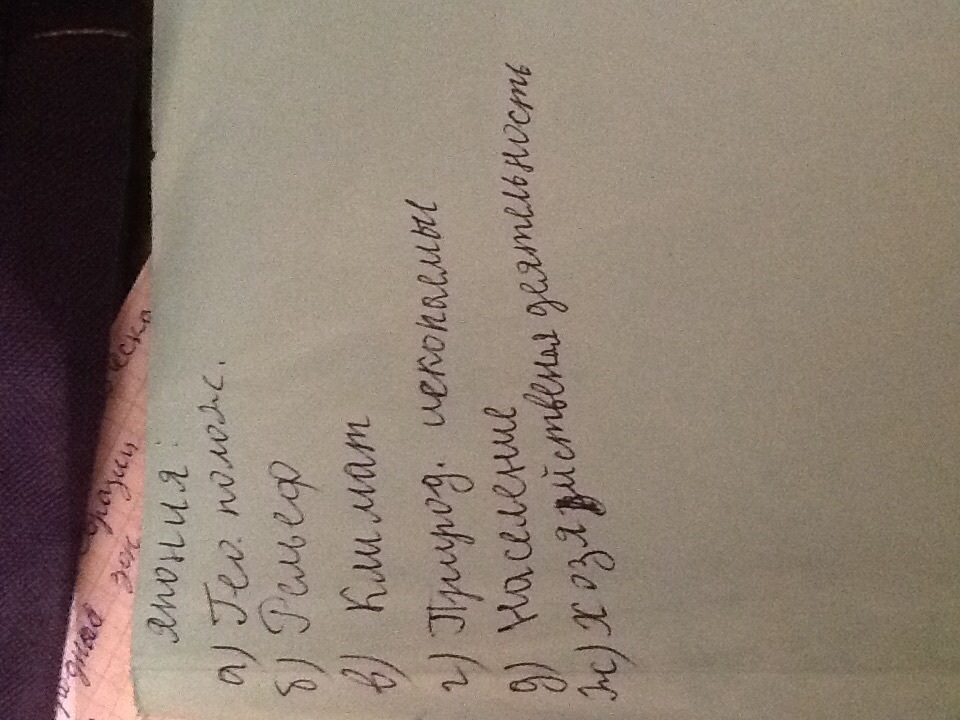 Япония:
а) Гео. полож.
б) Рельеф
в) Климат
г) Природ. ископаемые
д) Население
ж) хозяйственная деятельность